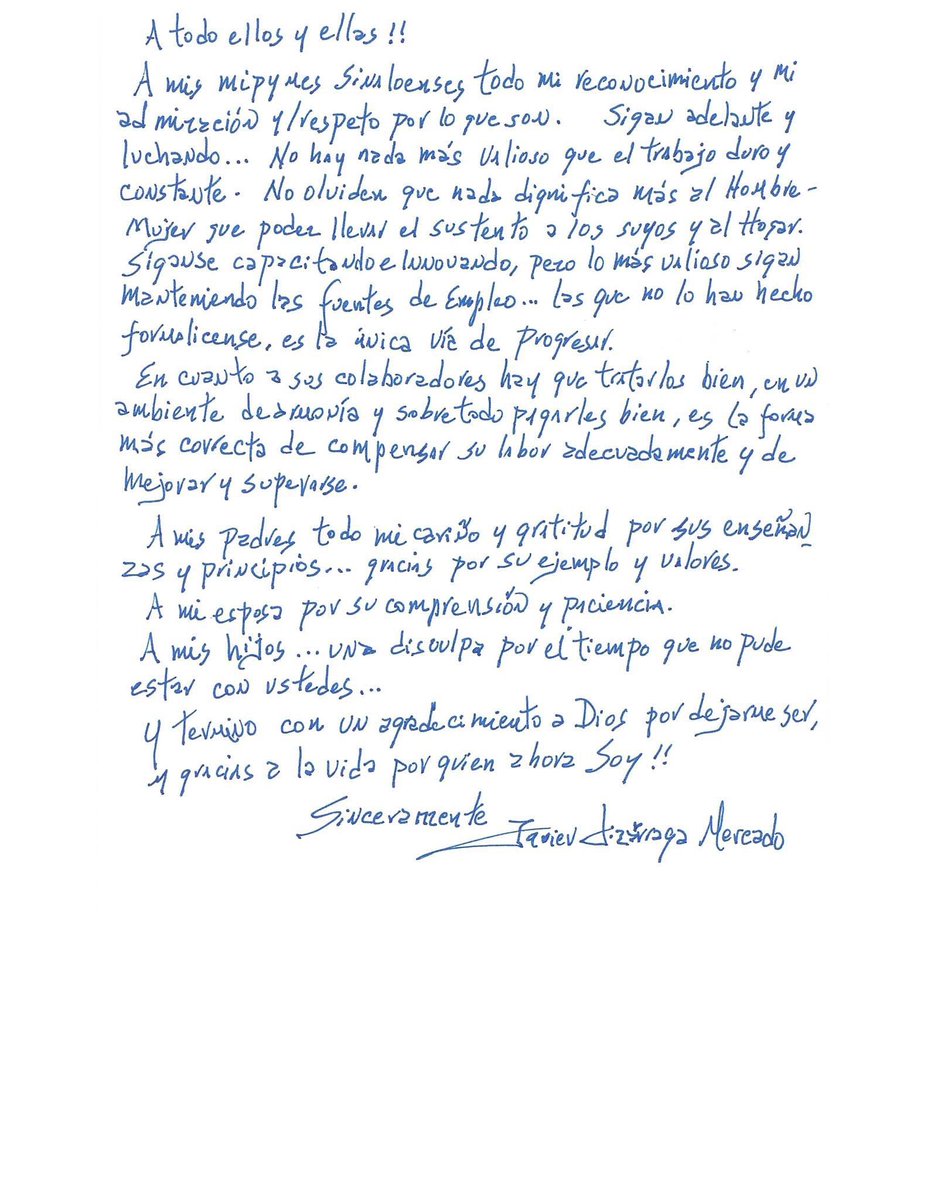 A todo ellos y ellas !!
A mis mipymes Sinaloenses todo mi reconocimiento y mi
admiración y/respeto por lo que son. Sigan adelante y
luchando... No hay nada más valioso que el trabajo duro y
constante. No olviden que nada dignifica más al Hombre-
Mujer que poder llevar el sustento a los suyos y al Hogar.
Síganse capacitando e Innovando, pero lo más valioso sigan
manteniendo las fuentes de Empleo... las que no lo han hecho
formalicense, es la única vía de Progresar.
En cuanto a sus colaboradores hay que tratarlos bien, en un
ambiente de armonía y sobre todo pagarles bien, es la forma
más correcta de compensar su labor adecuadamente y de
mejorar y superarse.
A mis padres todo mi cariño y gratitud por sus enseñan
zas y principios... gracias por su ejemplo y valores.
A mi esposa por su comprensión y paciencia.
A mis hijos... una disculpa por el tiempo que no pude
estar con ustedes...
Y termino con un agradecimiento a Dios por dejarme ser,
y gracias a la vida por quien ahora Soy !!
Sinceramente
Javier Lizárraga Mercado